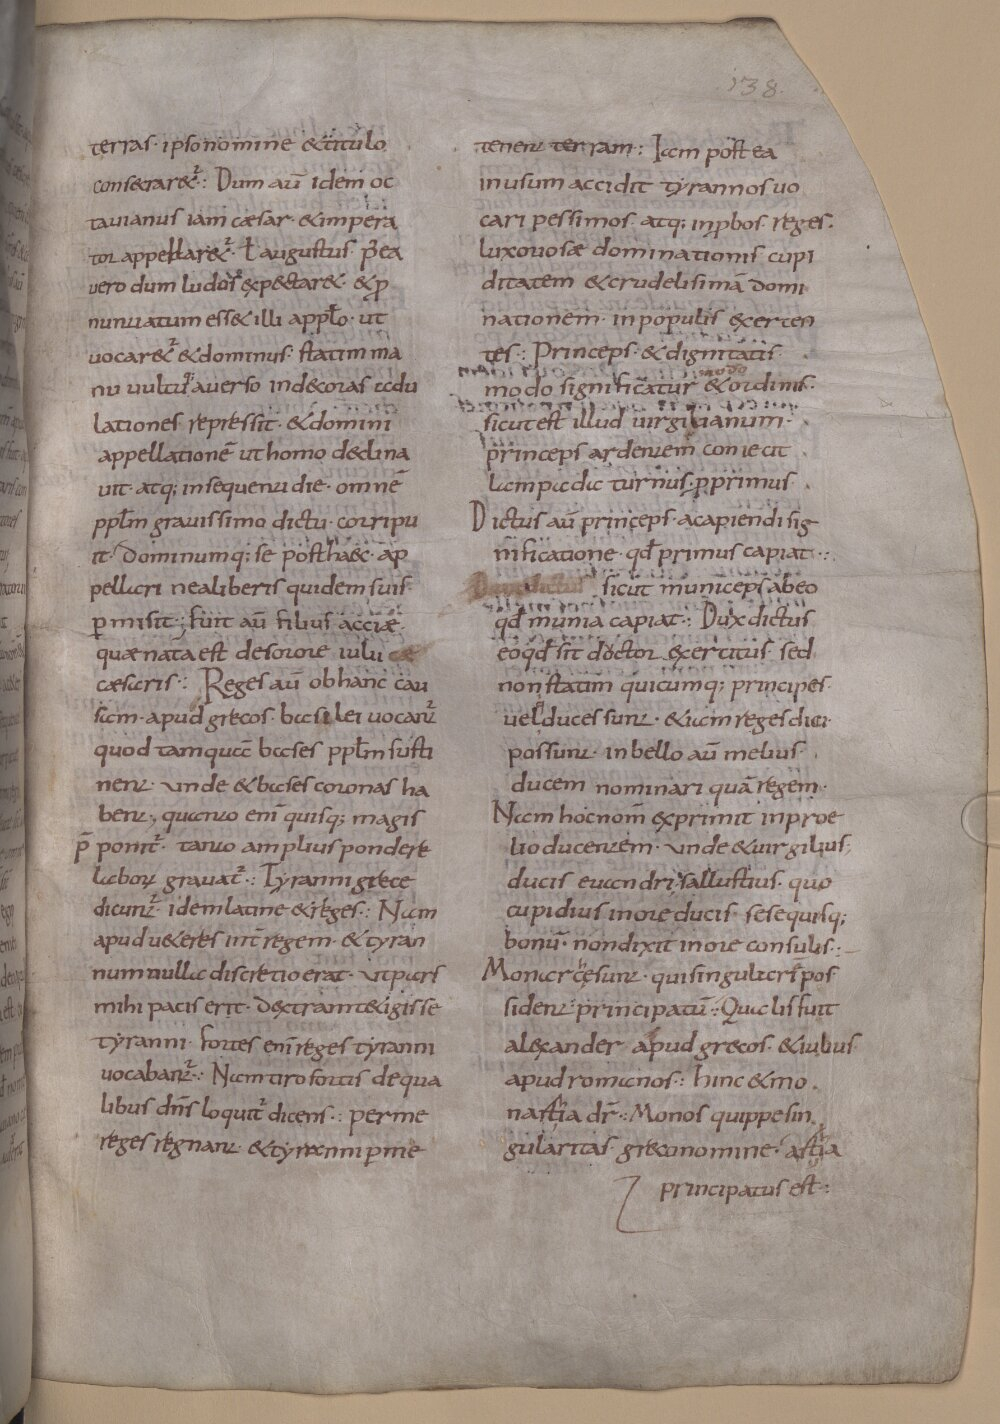 138
terras· ipso nomine & titulo
consecrar&ʳ: Dum aū idem oc
tauianus iam cæsar· & impera
tor appellar&ʳ· ł augustus p̄ea
uero dum ludos expectar&· & p
nuntiatum ess& illi appło· ut
uocar&ʳ & dominus· statim ma
nu uultuq; auerso indecoras adu
lationes repressit· & domini
appellationē ut homo declina
uit· atq; insequenti die· omnē
ppłm grauissimo dictu· corripu
it· Dominumq; se posthaec· ap
pellari ne a liberis quidem suis·
pmisit; Fuit aū filius acciæ·
quæ nata est de sorore iulii
cæsaris: Reges aū ob hanc cau
sam· apud grecos· basilei uocanʳ
quod tamquā bases ppłm susti
nent· Vnde & bases coronas ha
bent, quanto enī quisq; magis
p̄ponitʳ· tanto amplius pondere
laboꝝ grauatʳ: Tyranni grece
dicunʳ· idem latine & reges: Nam
apud u&eres int̄ regem· & tyran
num nulla discretio erat· ut pars
mihi pacis erit· dextram t&igisse
tyranni· fortes enī reges tyranni
uocabanʳ: Nam tiro fortis de qua
libus dn̄s loquitʳ dicens: per me
reges regnant· & tyranni p me
tenent terram: Iam post ea
in usum accidit tyrannos uo
cari pessimos atq; inpbos reges·
luxoriosæ dominationis cupi
ditatem & crudelisimā domi
nationem· in populis exercen
tes: Princeps· & dignitatis
modo
modo significatur & ordinis·
sicut est illud uirgilianum·
princeps ardentem coniecit
lampada turnus· p primus·
Dictus aū princeps· a capiendi sig
nificatione· qđ primus capiat:
sicut municeps ab eo
qđ munia capiat: Dux dictus
eo qđ sit doctor exercitus· sed
non statim quicumq; principes·
uel duces sunt· & iam reges dici
possunt· in bello aū melius
ducem nominari quā regem·
Nam hoc nom̄ exprimit in proe
lio ducentem· Vnde & uirgilius;
ducis euandri sallustius· quo
cupidius in ore ducis· se sequisq;
bonū· non dixit in ore consulis:
Monarcesunt· qui singularē pos
sident principatū: Qualis fuit
alexander apud grecos· & iulius
apud romanos: hinc & mo
narchia dr̄: Monos quippe sin
gularitas· greco nomine· archia
principatus est: